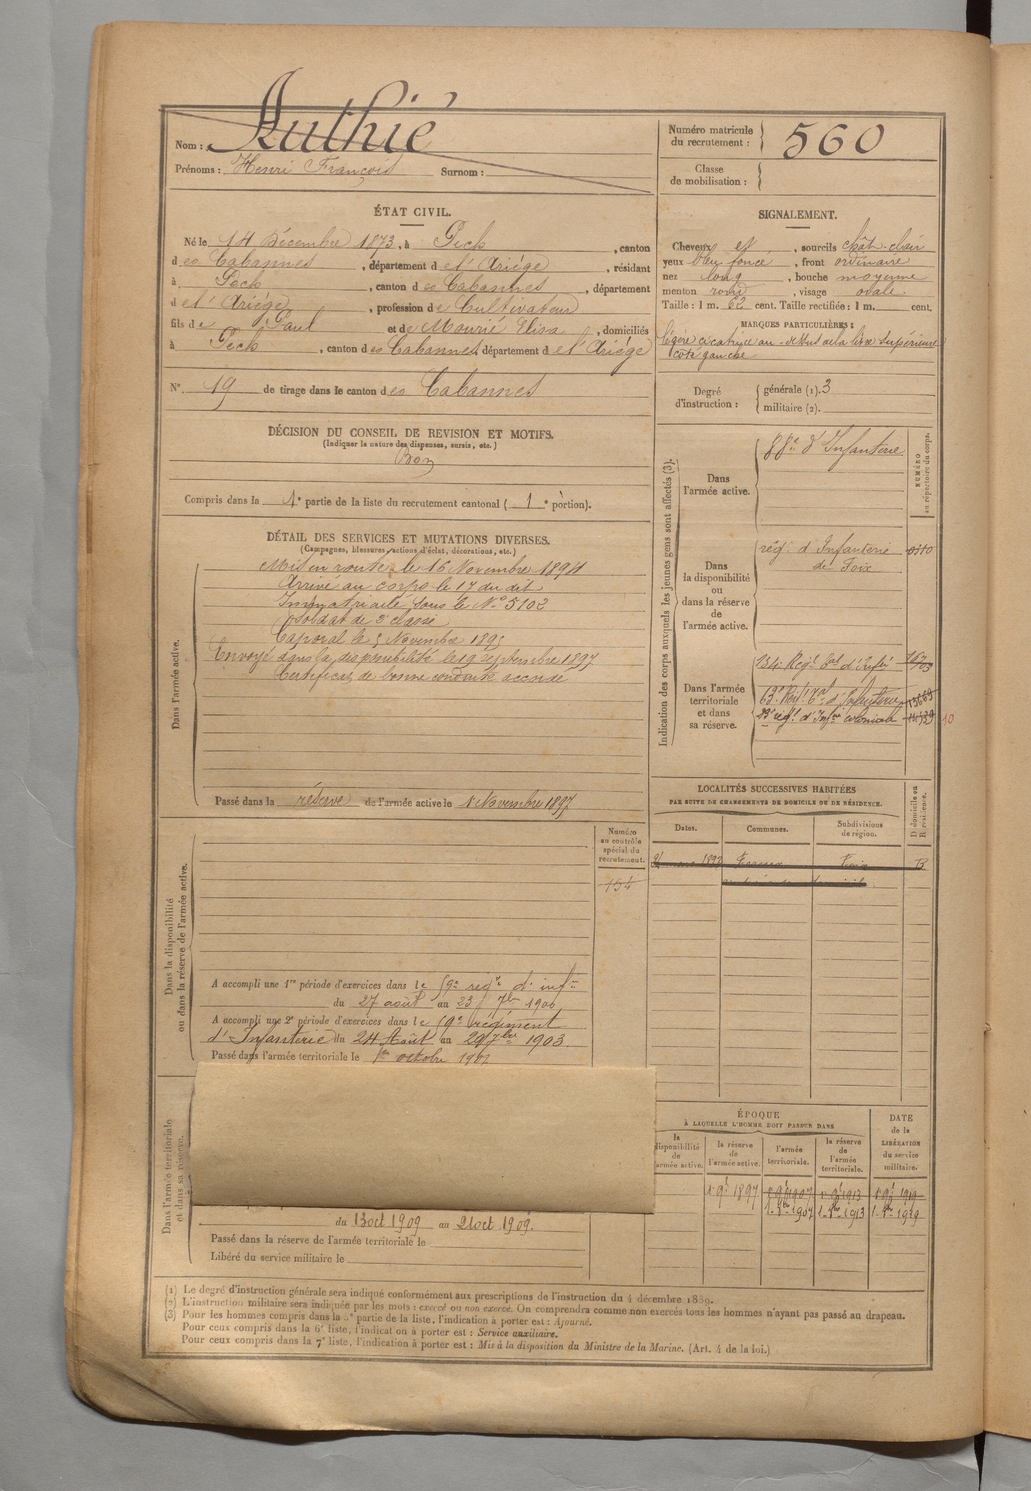 Nom : Authié
Prénoms : Henri François Surnom :
Numéro matricule du recrutement : 560
Classe de mobilisation :
ÉTAT CIVIL.
Né le 14 Décembre 1873, à Pech, canton
des Cabannes, département de l'Ariége, résidant
à Pech, canton des Cabannes, département
de l'Ariége, profession de Cultivateur
fils de Paul et de Mourié Elisa, domiciliés
à Pech, canton des Cabannes, département de l'Ariége
N° 19 de tirage dans le canton des Cabannes
DÉCISION DU CONSEIL DE REVISION ET MOTIFS.
(Indiquer la nature des dispenses, sursis, etc.)
Bon
Compris dans la 1e partie de la liste du recrutement cantonal ( 1 e portion).
DÉTAIL DES SERVICES ET MUTATIONS DIVERSES.
(Campagnes, blessures, actions d'éclat, décorations, etc.)
Dans l'armée active.
Mis en route le 16 Novembre 1894
Arrivé au corps le 17 du dit
Immatriculé sous le N° 5102
Soldat de 2e classe
Caporal le 5 Novembre 1895
Envoyé dans la disponibilité le 19 septembre 1897
Certificat de bonne conduite accordé
Passé dans la réserve de l'armée active le 1 Novembre 1897
Dans la disponibilité ou dans la réserve de l'armée active.
Numéro au contrôle spécial du recrutement.
154
A accompli une 1re période d'exercices dans le 59e régt d'infie
du 27 août au 23 7bre 1900
A accompli une 2e période d'exercices dans le 59e régiment
d'Infanterie du 24 Août au 20 7bre 1903.
Passé dans l'armée territoriale le 1er octobre
Dans l'armée territoriale et dans sa réserve.
du 13 oct 1909 au 21 oct 1909.
Passé dans la réserve de l'armée territoriale le
Libéré du service militaire le
SIGNALEMENT.
Cheveux et, sourcils chât. clair
yeux bleu foncé, front ordinaire
nez long, bouche moyenne
menton rond, visage ovale
Taille : 1 m. 62 cent. Taille rectifiée : 1 m. cent.
MARQUES PARTICULIÈRES :
légère cicatrice au-dessus de la lèvre supérieure
côté gauche
Degré d'instruction : générale (1). 3
militaire (2).
Indication des corps auxquels les jeunes gens sont affectés (3).
NUMÉRO au répertoire du corps.
Dans l'armée active.
88e d'Infanterie
Dans la disponibilité ou dans la réserve de l'armée active.
régt d'Infanterie
de Foix
Dans l'armée territoriale et dans sa réserve.
134e Régt tal d'Infie
régt d'Infie coloniale
10
LOCALITÉS SUCCESSIVES HABITÉES
PAR SUITE DE CHANGEMENTS DE DOMICILE OU DE RÉSIDENCE.
Dates. Communes. Subdivisions de région. D. domicile ou R. résidence.
Foix
ÉPOQUE
À LAQUELLE L'HOMME DOIT PASSER DANS
la disponibilité de l'armée active. la réserve de l'armée active. l'armée territoriale. la réserve de l'armée territoriale.
DATE de la LIBÉRATION du service militaire.
1 9bre 1897 1 9bre 1907 1 9bre 1913 1 9bre 1919
1. 8bre 1907 1. 8bre 1913 1. 8bre 1919
(1) Le degré d'instruction générale sera indiqué conformément aux prescriptions de l'instruction du 4 décembre 1889.
(2) L'instruction militaire sera indiquée par les mots : exercé ou non exercé. On comprendra comme non exercés tous les hommes n'ayant pas passé au drapeau.
(3) Pour les hommes compris dans la 5e partie de la liste, l'indication à porter est : Ajourné.
Pour ceux compris dans la 6e liste, l'indication à porter est : Service auxiliaire.
Pour ceux compris dans la 7e liste, l'indication à porter est : Mis à la disposition du Ministre de la Marine. (Art. 4 de la loi.)